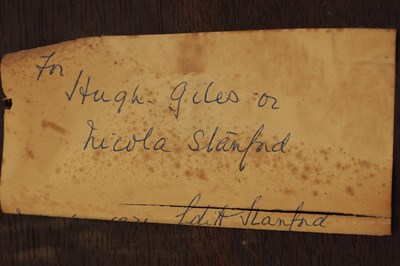 For
Hugh. Giles or
Nicola Stanford
Edith Stanford